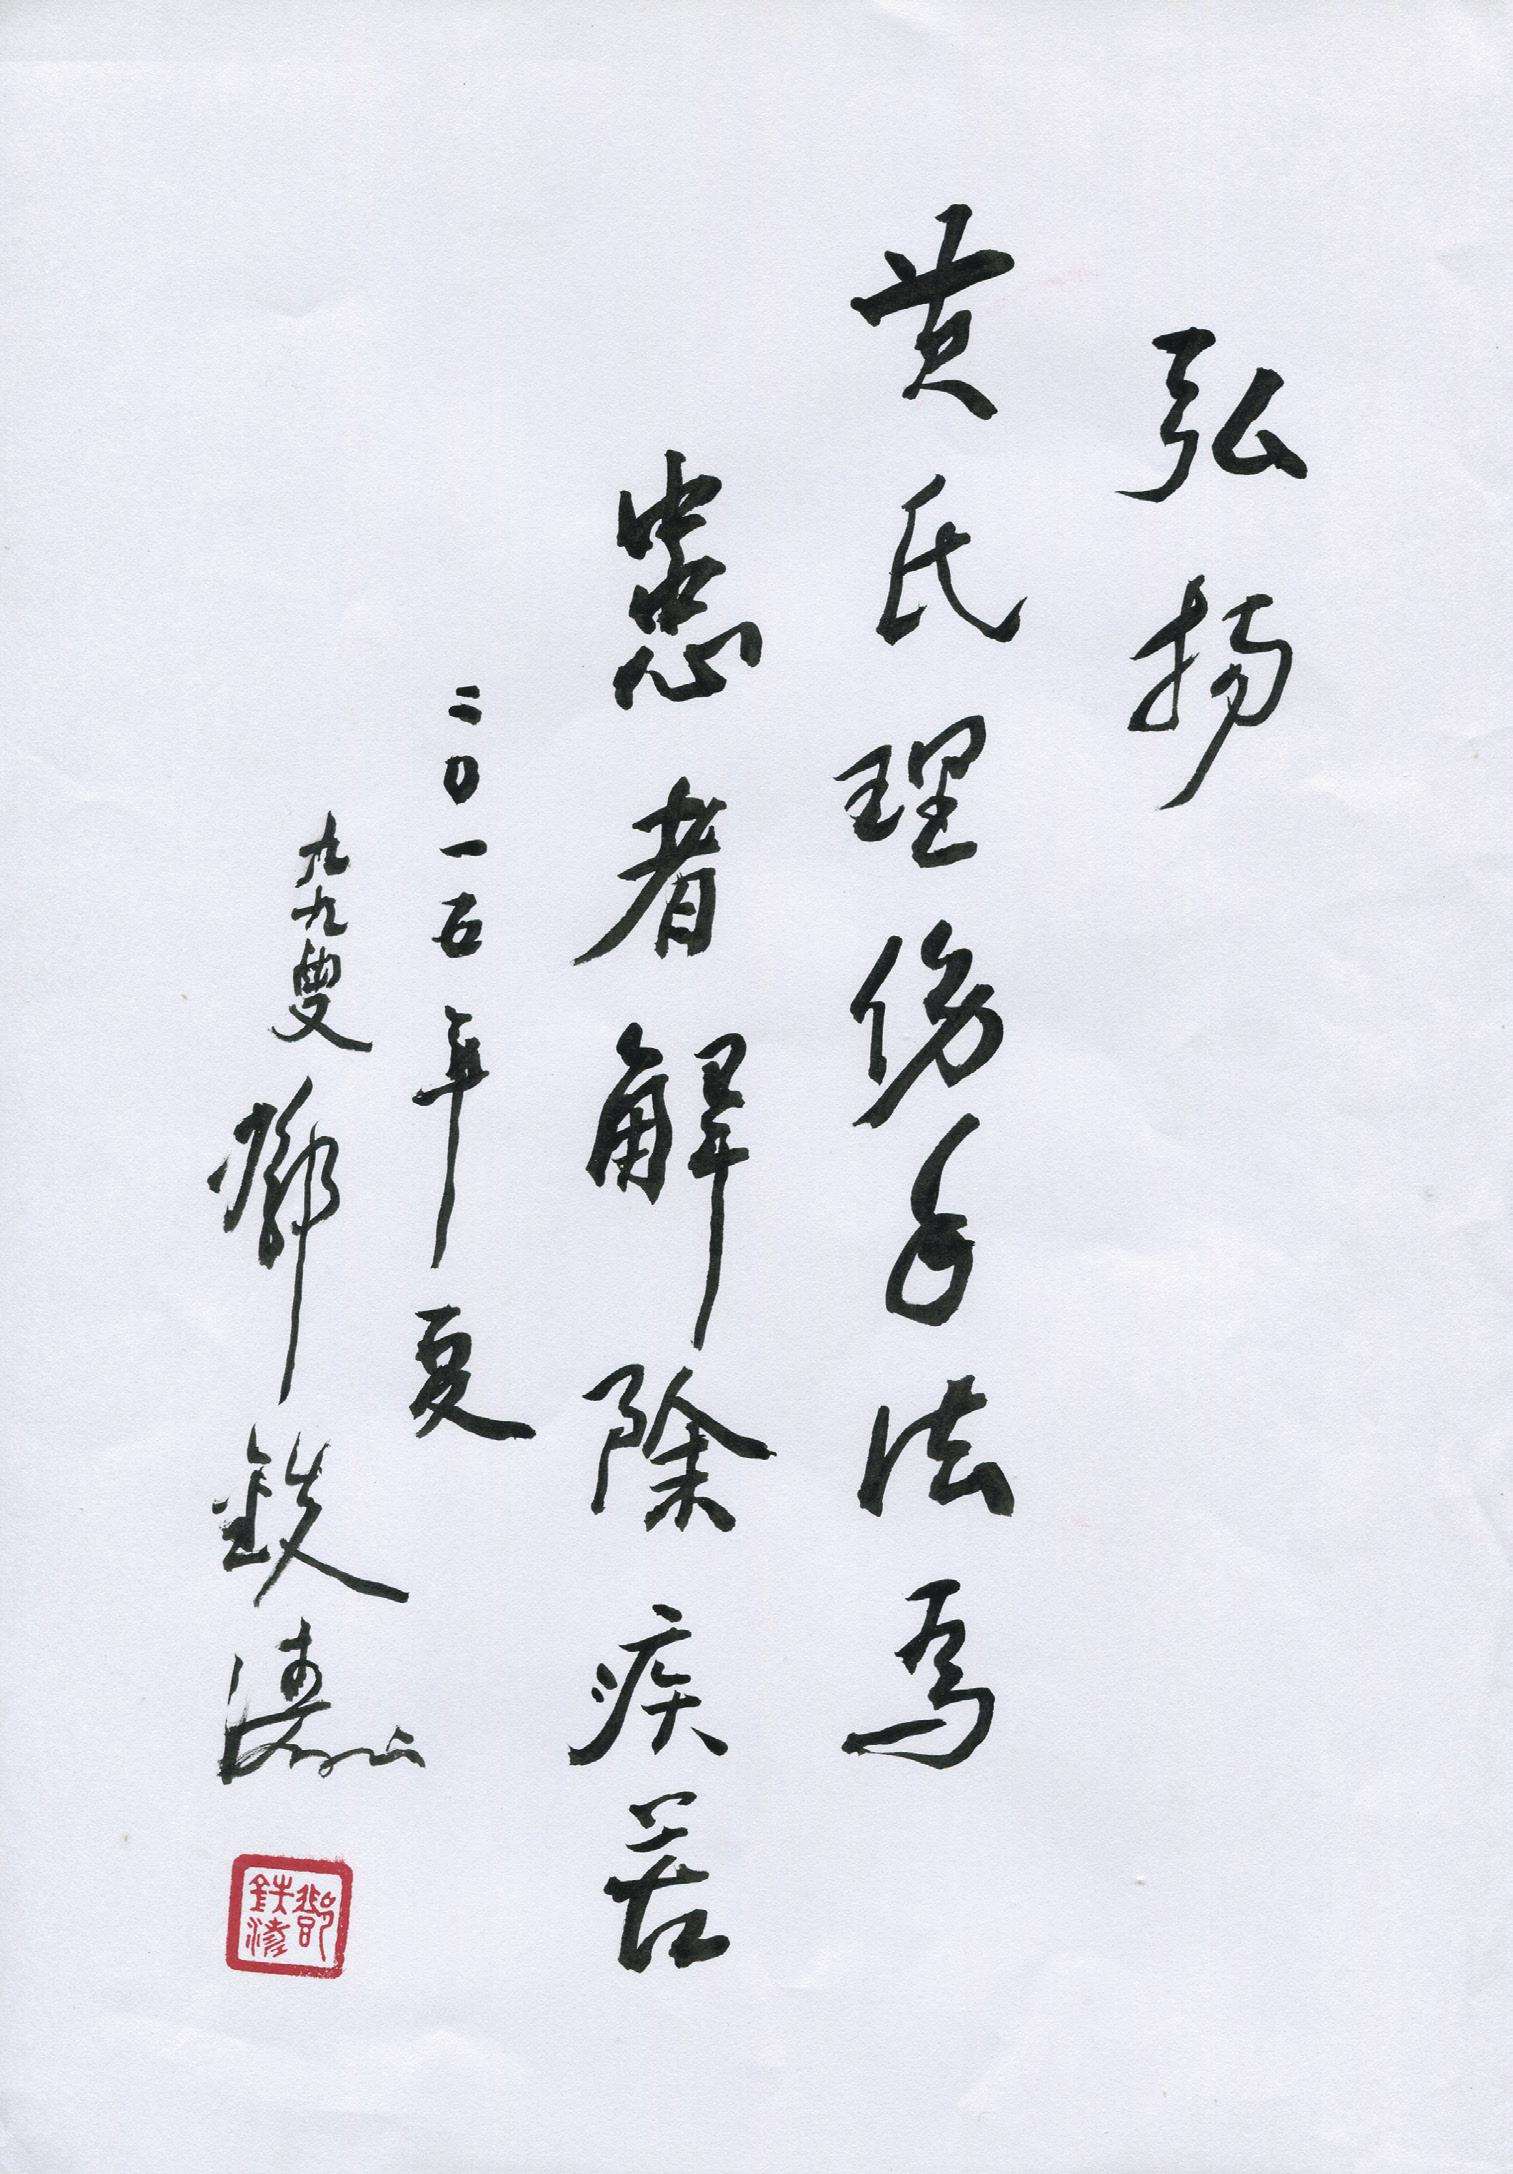 弘扬
黄氏理伤手法为
患者解除疾苦
二〇一五年夏
九九叟 鄧鉄涛
鄧鉄涛